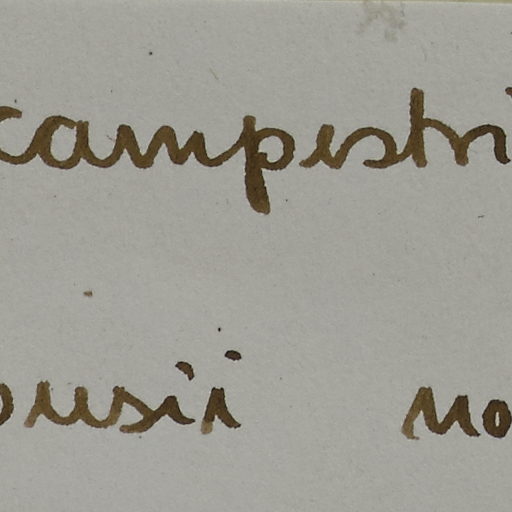 campestri
ousii no